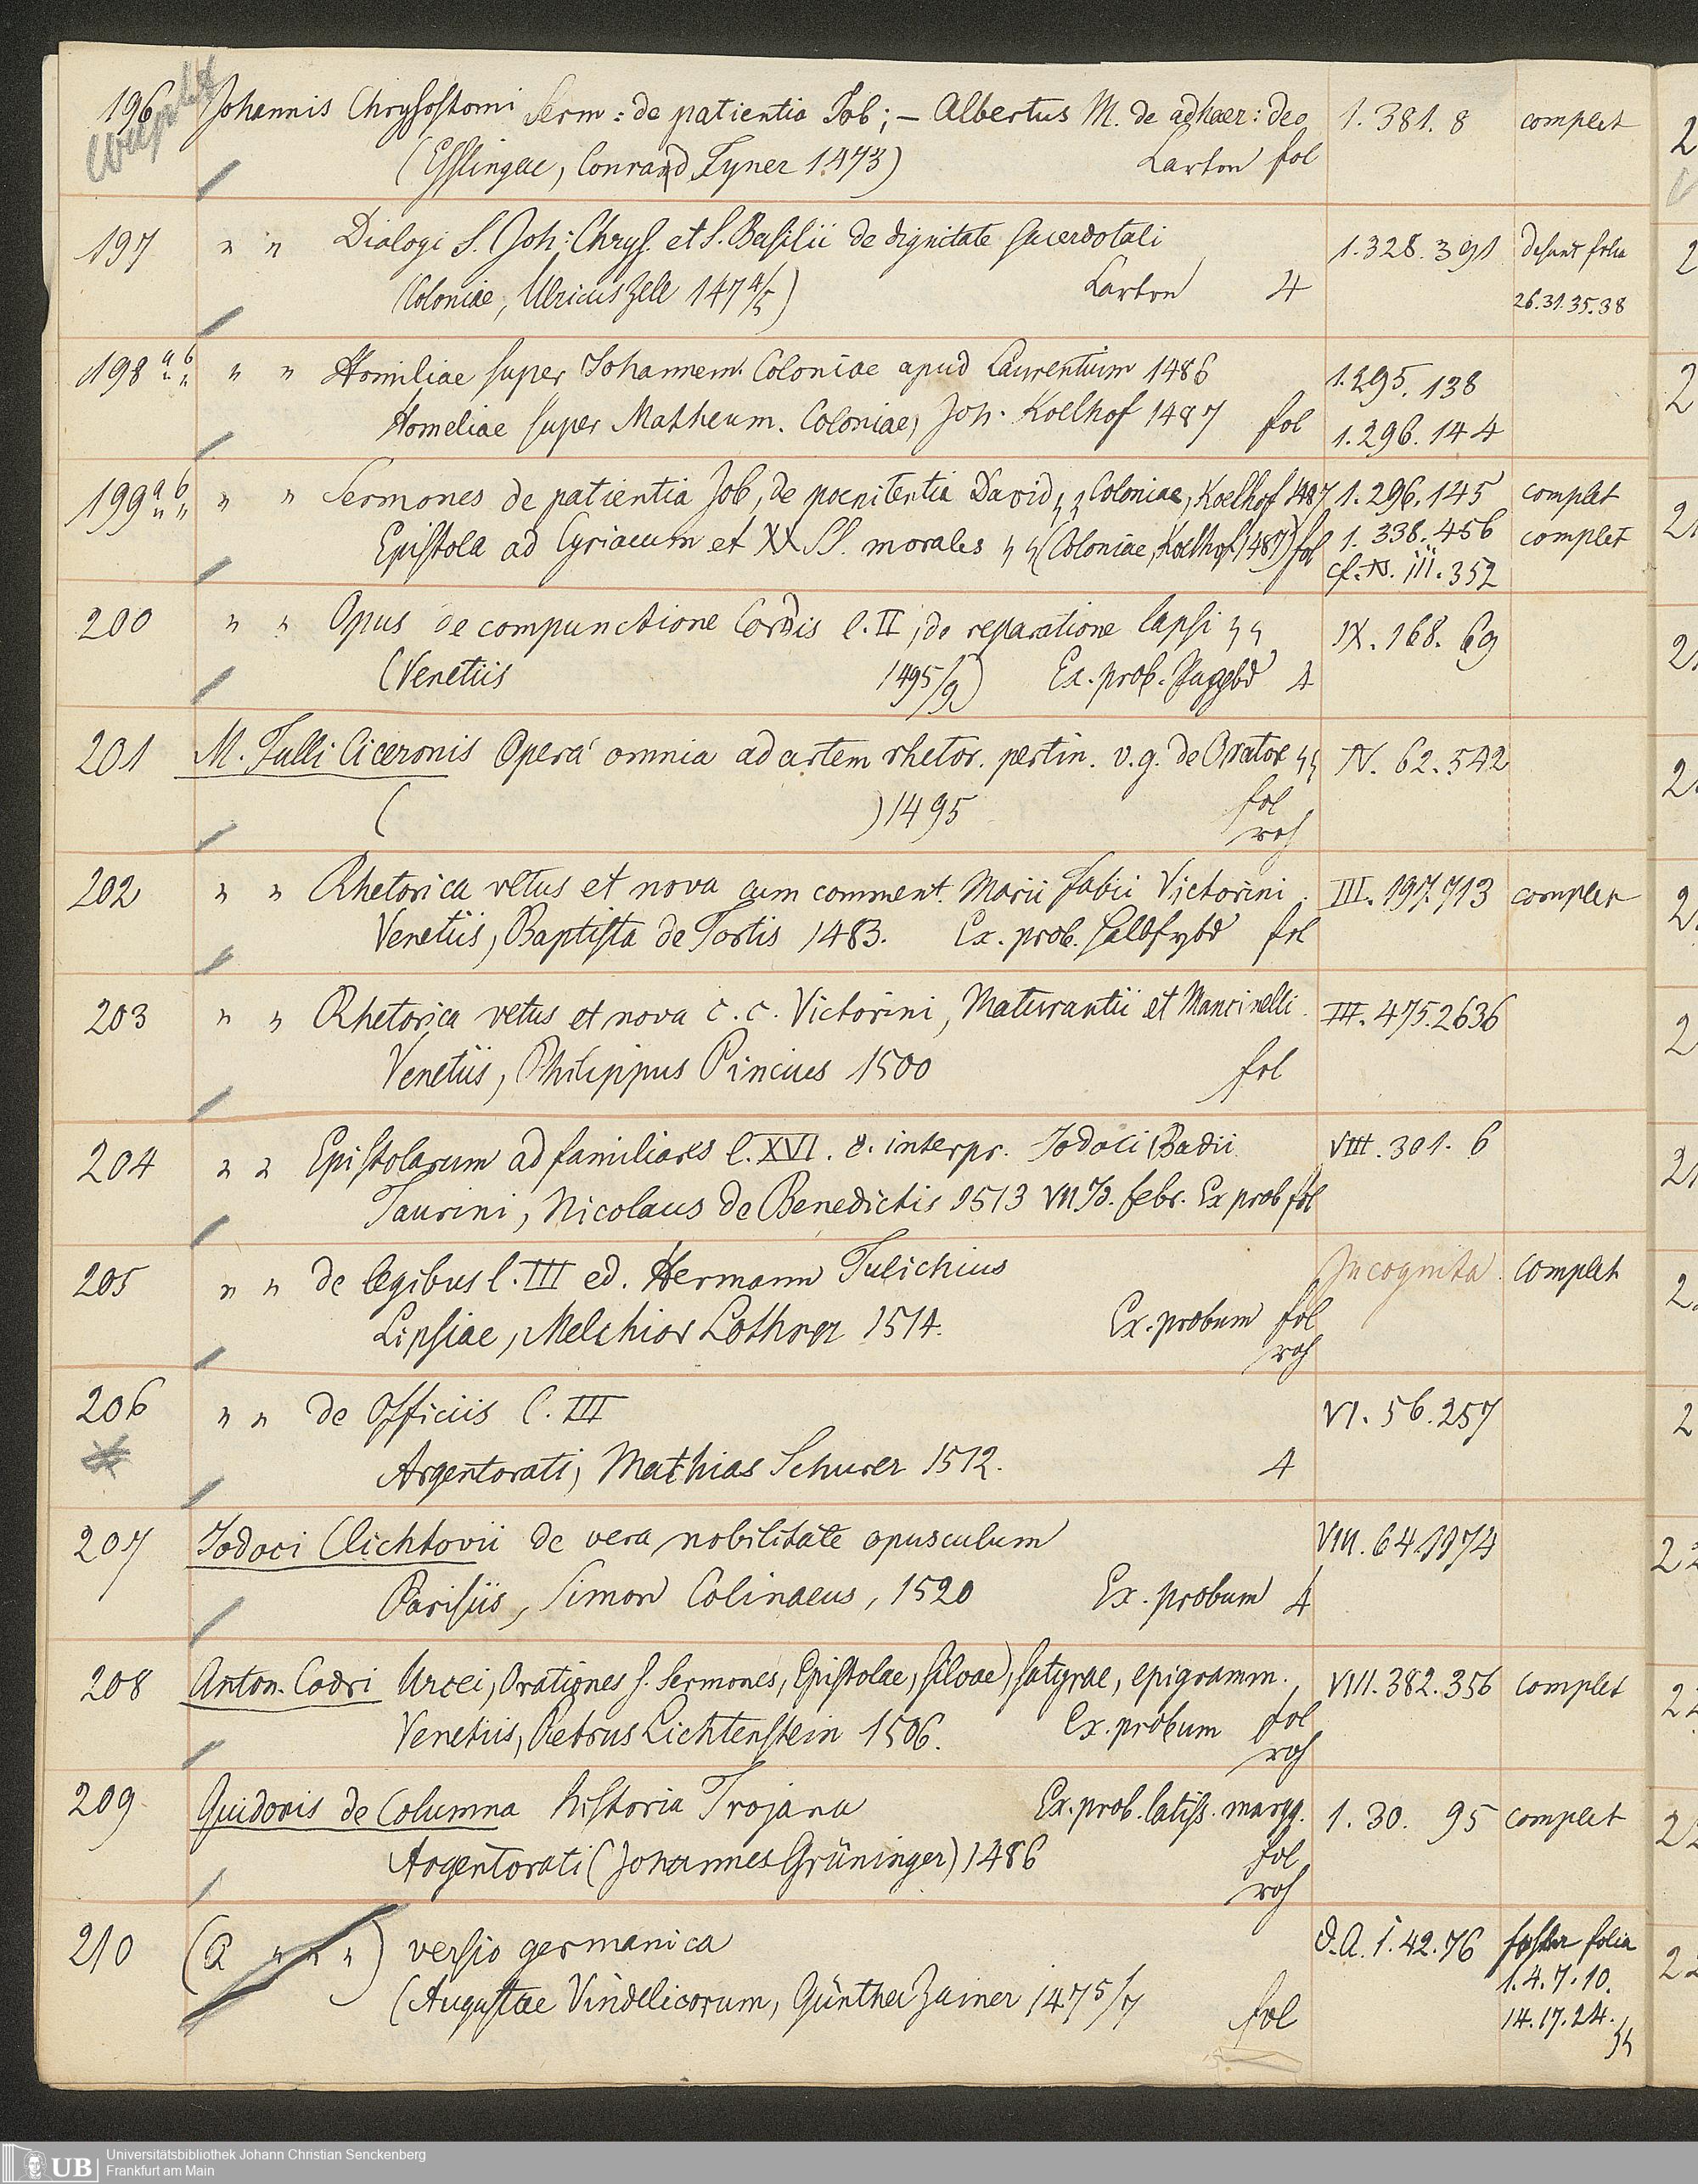 196 Johannis Chrysostomi Serm: de patientia Job; – Albertus M. de adhaer: deo 1. 381. 8 complet
(Esslingae, Conrad Fyner 1473) Carton fol
197 " " Dialogi S. Joh: Chrys. et S. Basilii de dignitate sacerdotali 1. 328. 391 desunt folia
(Coloniae, Ulricus Zell 147 4/5) Carton 4 26. 31. 35. 38
198 a b " " Homiliae super Johannem. Coloniae apud Laurentium 1486 1. 295. 138
Homeliae super Matheum. Coloniae, Joh. Koelhof 1487 fol 1. 296. 144
199 a b " " Sermones de patientia Job, de poenitentia David, Coloniae, Koelhof 1487 1. 296. 145 complet
Epistola ad Cyriacum et XX SS. morales (Coloniae, Koelhof 1487) fol 1. 338. 456 complet
cf. N. III. 352
200 " " Opus de compunctione Cordis l. II, de reparatione lapsi IX. 168. 69
(Venetiis 1495/9) Ex. prob. 4
201 M. Tulli Ciceronis Opera omnia ad artem rhetor. pertin. v. g. de Orator IV. 62. 542
( ) 1495 fol
roh
202 " " Rhetorica vetus et nova cum comment. Marii Fabii Victorini. III. 197. 713 complet
Venetiis, Baptista de Tortis 1483. Ex. prob. Halbfrzbd fol
203 " " Rhetorica vetus et nova c. c. Victorini, Maturantii et Mancinelli. III. 475. 2636
Venetiis, Philippus Pincius 1500 fol
204 " " Epistolarum ad familiares l. XVI. c. interpr. Jodoci Badii. VIII. 301. 6
Taurini, Nicolaus de Benedictis 1513 VII Id. febr. Ex prob fol
205 " " de legibus l. III ed. Hermann Tulichius Incognita. complet
Lipsiae, Melchior Lothrer 1514. Ex. probum fol
roh
206 " " de Officiis l. III VI. 56. 257
Argentorati, Mathias Schurer 1512. 4
207 Jodoci Clichtovii de vera nobilitate opusculum VIII. 64. 1974
Parisiis, Simon Colinaeus, 1520 Ex. probum 4
208 Anton. Codri Urcei, Orationes s. Sermones, Epistolae, Silvae, satyrae, epigramm. VIII. 382. 356 complet
Venetiis, Petrus Lichtenstein 1506. Ex. probum fol
roh
209 Guidonis de Columna historia Trojana Ex. prob. latiss. margg. 1. 30. 95 complet
Argentorati (Johannes Grüninger) 1486 fol
roh
210 (a " " ") versio germanica D. A. 1. 42. 76 folia
(Augustae Vindelicorum, Günther Zainer 1475/7 fol 1. 4. 7. 10.
14. 17. 24.
UB Universitätsbibliothek Johann Christian Senckenberg
Frankfurt am Main